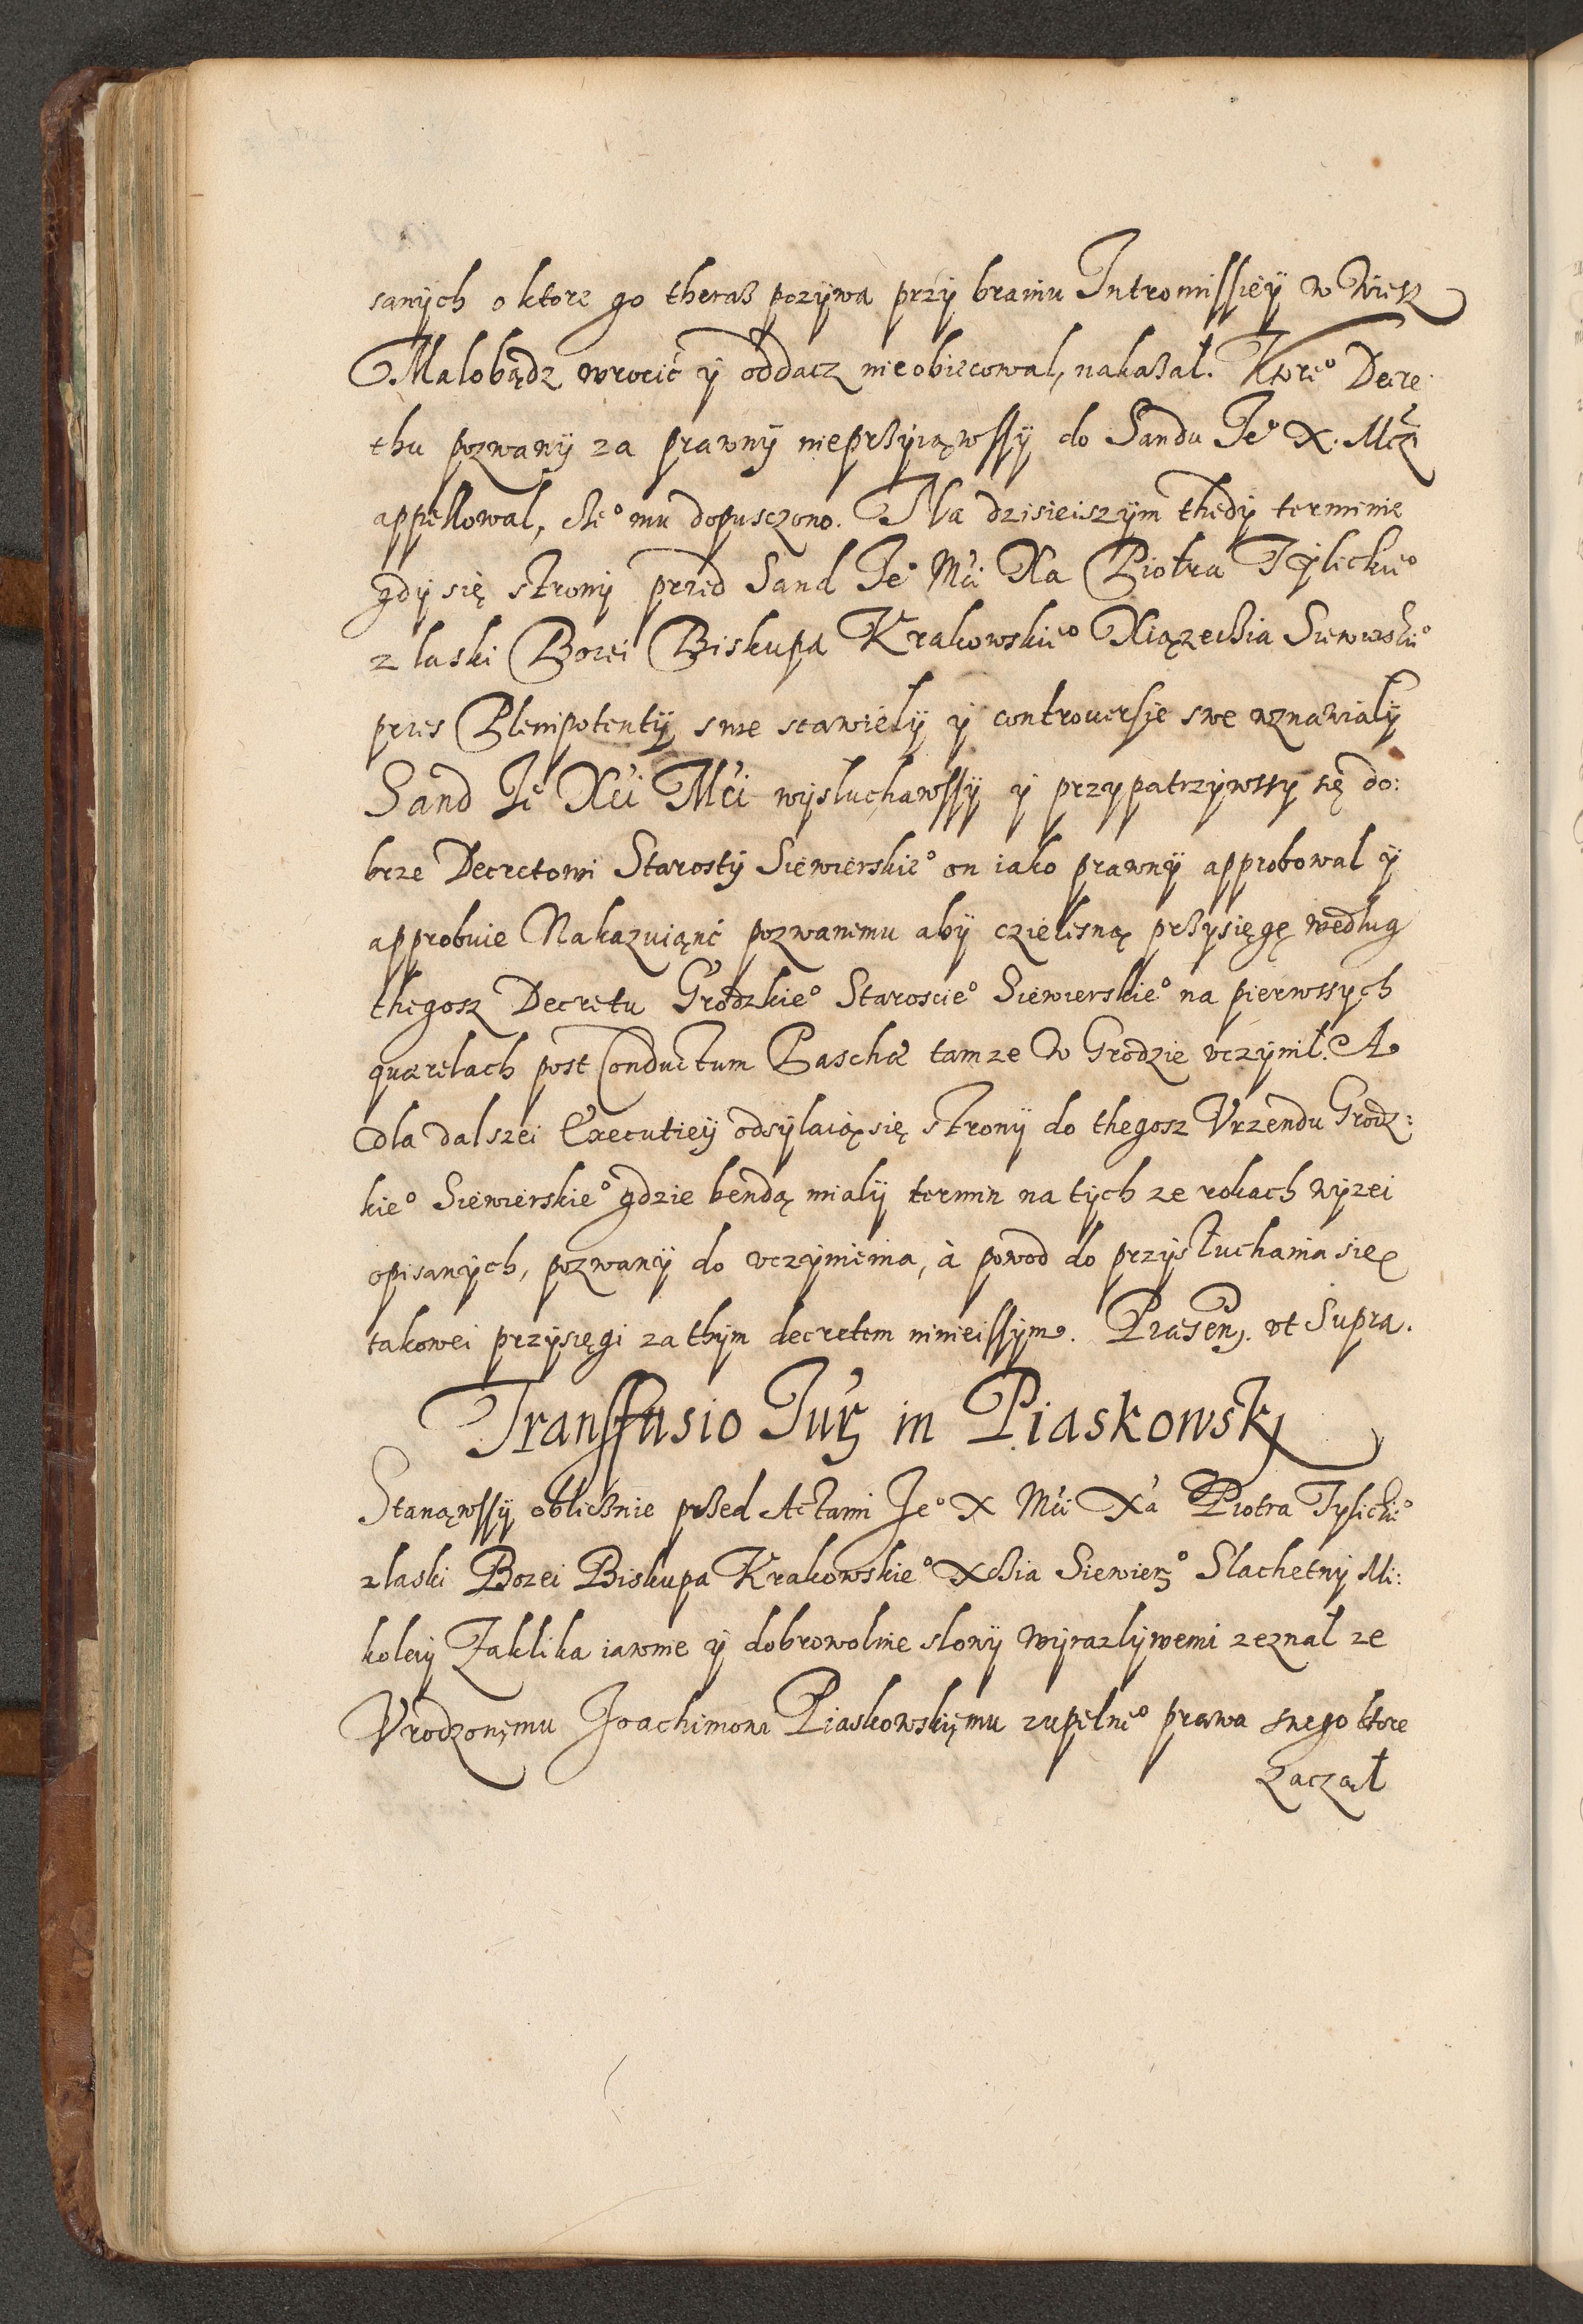 sanych o ktore go theraß pozywa przy braniu Intromissiey w Wiesz
Malobądz wrocić y oddacz nie obiecowal, nakaßał. Ktoreº Decre
thu pozwany za prawny nieprßyiąwssy do Sandu Jeº X. Mczi
appellowal, cßeº mu dopusczono. Na dzisieiszym thedy terminie
gdy się strony przed Sand Jeº Mći Xa Piotra Tylickieº
z laski Bozei Biskupa Krakowskieº Xiązęcßia Siewierskieº
przes Plenipotenty swe stawiely y controuersie swe wznawialy
Sand Jeº Xći Mći wysluchawssy y przypatrzywssy się do:
brze Decretowi Starosty Siewierskieº on iako prawny approbowal y
approbuie Nakazuiąnć pozwanemu aby czielesną prßysięgę według
thegosz Decretu Grodzkieº Staroscieº Siewierskieº na pierwssych
quærelach post Conductum Paschæ tamze w Grodzie vczynił. A
dla dalszei Executiey odsylaią się strony do thegosz Vrzendu Grodz:
kieº Siewierskieº gdzie bendą mialy termin na tych ze rokach wyzei
opisanych, pozwany do vczynienia, à powod do przysłuchania się
takowei przysięgi za thym decretem ninieissym. Præsen. vt Supra.
Transfusio Jur in Piaskowski
Stanąwssy oblicßnie prßed Actami Jeº X Mći Xa Piotra Tylickieº
z laski Bozei Biskupa Krakowskieº Xcßia Siewierº Slachetny Mi:
kolaiy Zaklika iawnie y dobrowolnie slowy wyrazlywemi zeznał ze
Vrodzonemu Joachimowi Piaskowskiemu zupełneº prawa swego ktore
zaczął